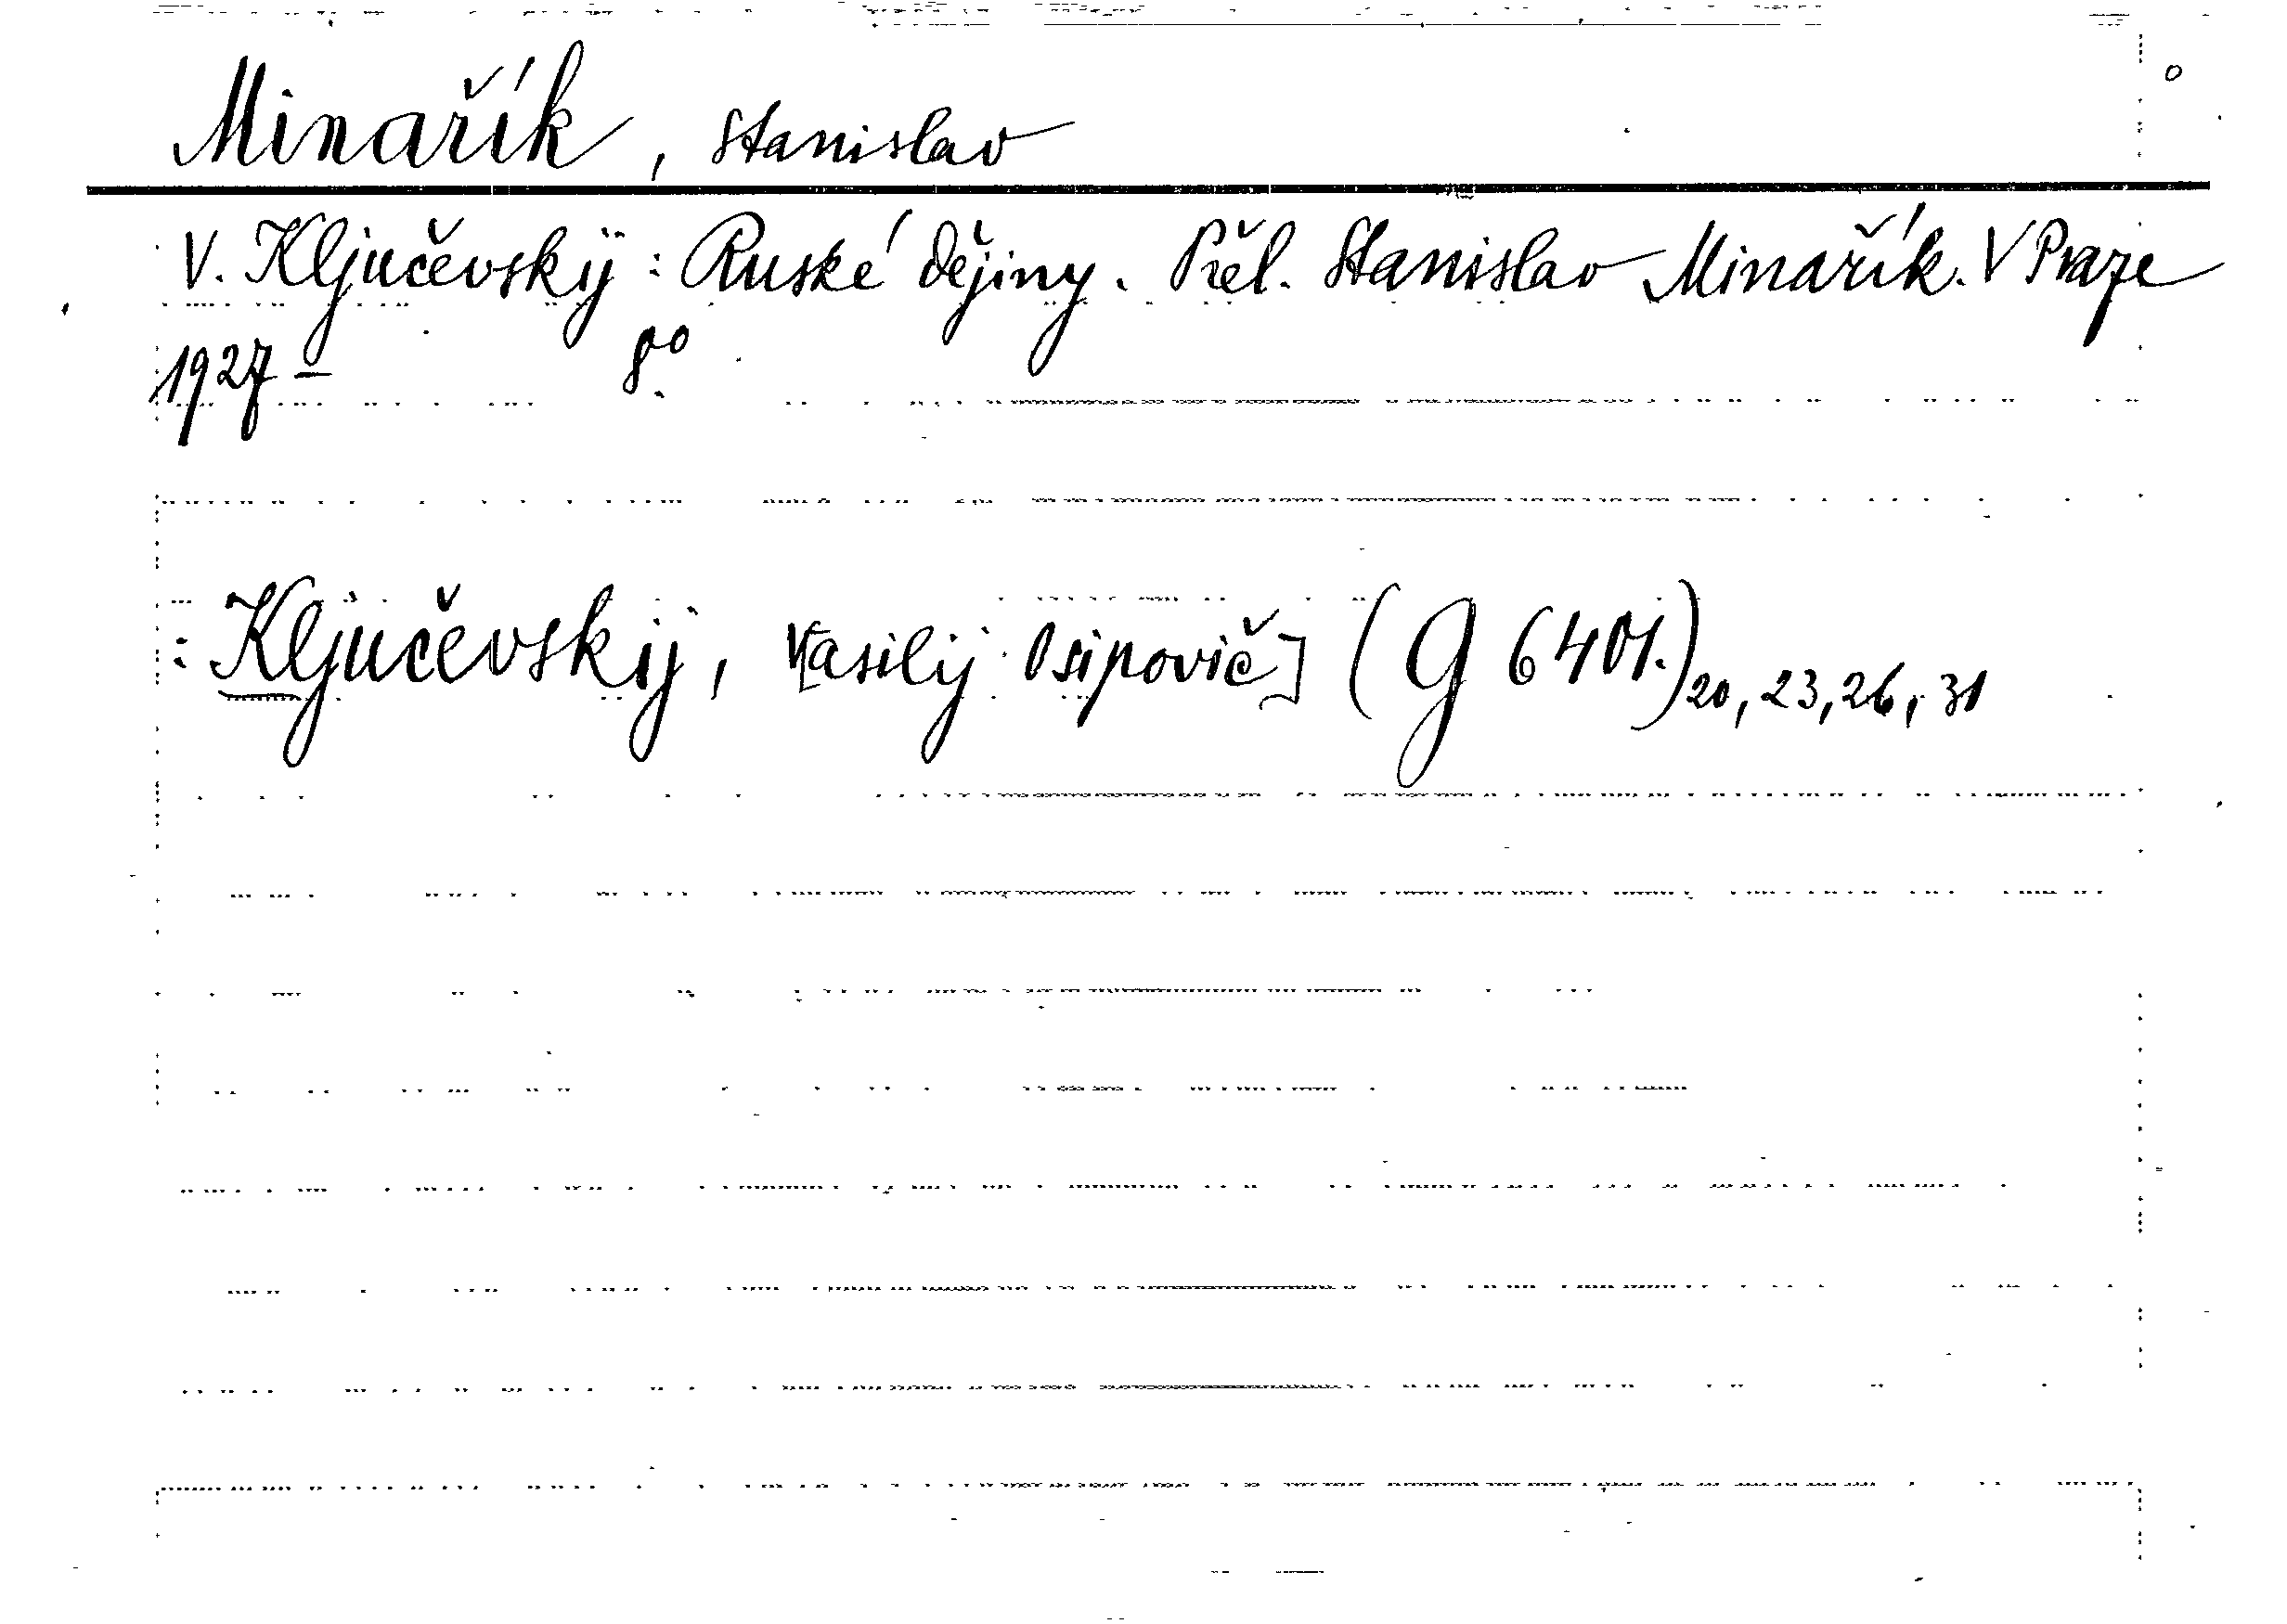 Minařík, Stanislav
V. Ključevskij: Ruské dějiny. Přel. Stanislav Minařík. V Praze
1927- 8º
: Ključevskij, V[asilij Osipovič] (G 6401.) 20, 23, 26, 31